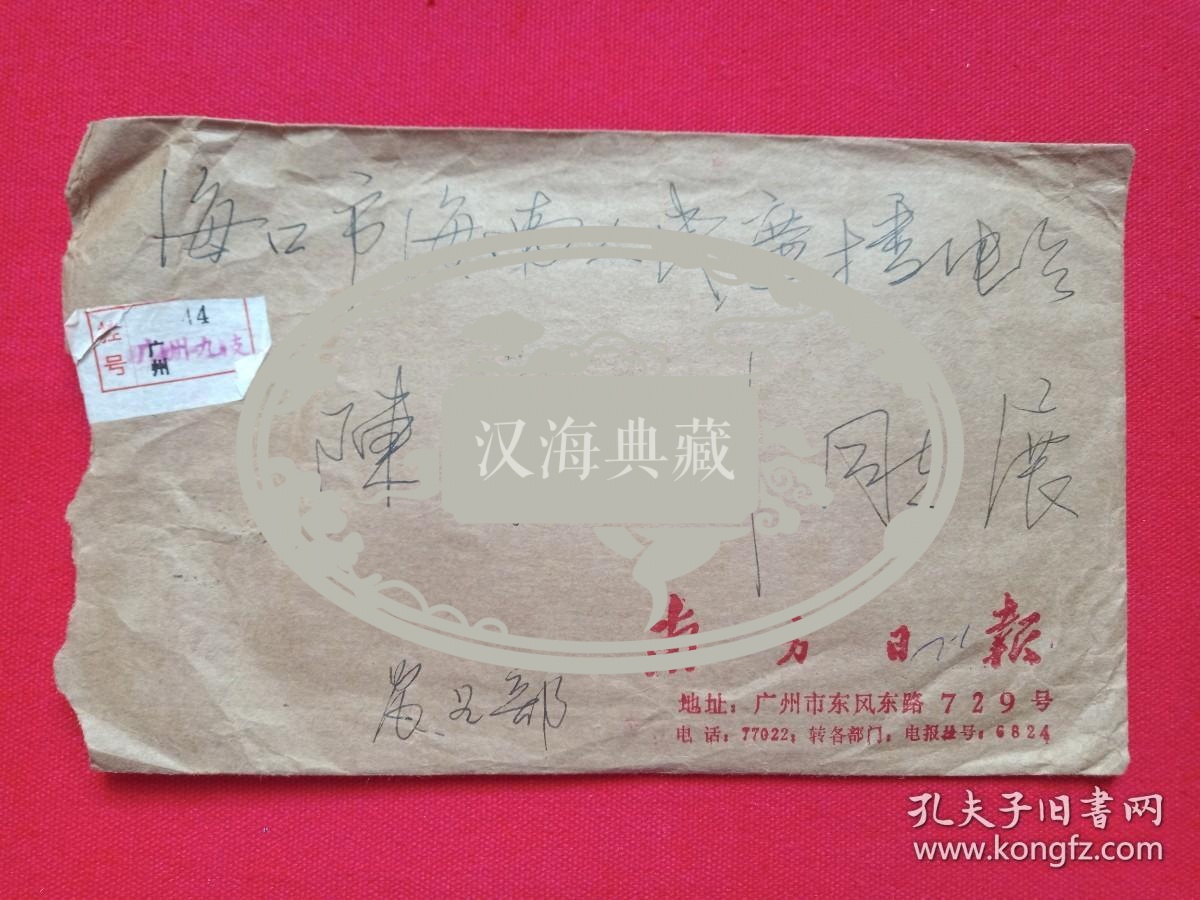 海口市海南人民广播电台
挂号 广州 44
广州九支
陳 同志 展
汉海典藏
南方日报
农民部
地址：广州市东风东路729号
电话：77022；转各部门；电报挂号：6824
孔夫子旧书网
www.kongfz.com